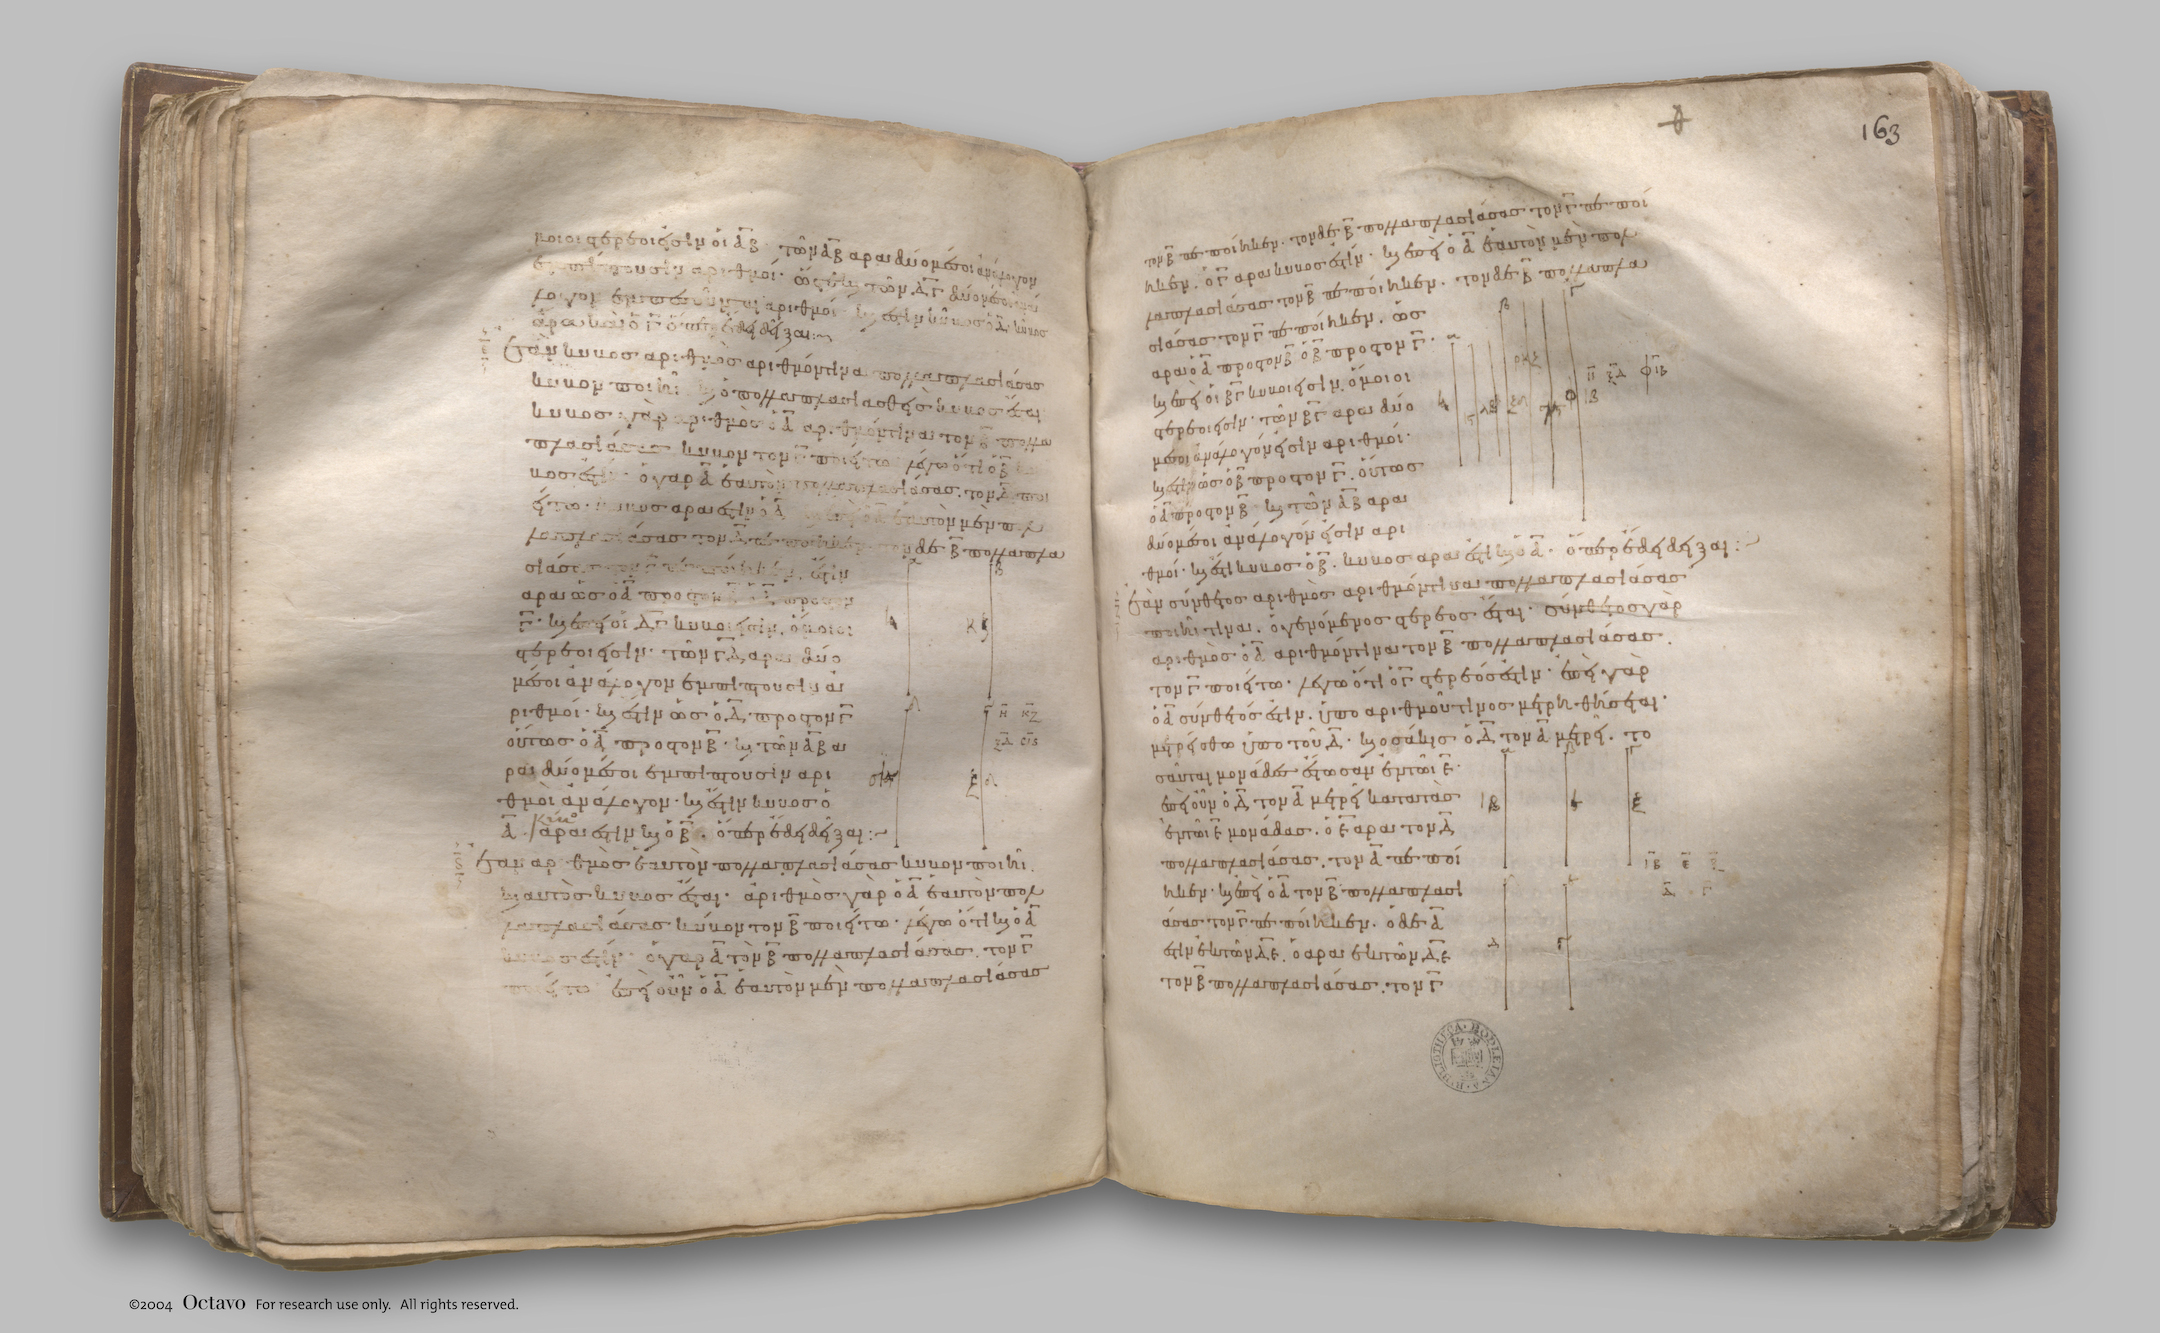 μοιοι στερεοι εἰσιν οἱ Α Β· τῶν Α Β ἄρα δύο μέσοι ἀνάλογον
ἐμπίπτουσιν ἀριθμοί· ὥστε καὶ τῶν Δ Γ δύο μέσοι ἀνά
λογον ἐμπεσοῦνται ἀριθμοί· καί ἐστιν κύβος ὁ Δ κύβος
ἄρα καὶ ὁ Γ ὅπερ ἔδει δεῖξαι
Ἐὰν κύβος ἀριθμὸς ἀριθμόν τινα πολλαπλασιάσας
κύβον ποιῆι καὶ ὁ πολλαπλασιασθεὶς κύβος ἔσται
κύβος γὰρ ἀριθμὸς ὁ Α ἀριθμόν τινα τὸν Β πολλα
πλασιάσας κύβον τὸν Γ ποιείτω λέγω ὅτι ὁ Β κύ
βος ἐστίν· ὁ γὰρ Α ἑαυτὸν πολλαπλασιάσας τὸν Δ ποι
είτω· κύβος ἄρα ἐστὶν ὁ Δ καὶ ἐπεὶ ὁ Α ἑαυτὸν μὲν πολ
λαπλασιάσας τὸν Δ πεποίηκεν τὸν δὲ Β πολλαπλα
σιάσας τὸν Γ πεποίηκεν, ἔστιν
ἄρα ὡς ὁ Α πρὸς τὸν Β ὁ Δ πρὸς τὸν
Γ· καὶ ἐπεὶ οἱ Δ Γ κύβοι εἰσίν, ὅμοιοι
στερεοί εἰσιν· τῶν Γ Δ ἄρα δύο
μέσοι ἀνάλογον ἐμπίπτουσιν ἀ
ριθμοί· καί ἐστιν ὡς ὁ Δ πρὸς τὸν Γ
οὕτως ὁ Α πρὸς τὸν Β· καὶ τῶν Α Β ἄ
ρα δύο μέσοι ἐμπίπτουσιν ἀρι
θμοὶ ἀνάλογον· καί ἐστιν κύβος ὁ
Α· κύβος ἄρα ἐστὶν καὶ ὁ Β. ὅπερ ἔδει δεῖξαι:~
Ἐὰν ἀριθμὸς ἑαυτὸν πολλαπλασιάσας κύβον ποιῆι.
καὶ αὐτὸς κύβος ἔσται· ἀριθμὸς γὰρ ὁ Α ἑαυτὸν πολ
λαπλασιάσας κύβον τὸν Β ποιείτω· λέγω ὅτι καὶ ὁ Α
κύβος ἐστίν· ὁ γὰρ Α τὸν Β πολλαπλασιάσας, τὸν Γ
ποιείτω· ἐπεὶ οὖν ὁ Α ἑαυτὸν μὲν πολλαπλασιάσας
163
τὸν Β πεποίηκεν. τὸν δὲ Β πολλαπλασιάσας τὸν Γ πεποί
ηκεν. ὁ Γ ἄρα κύβος ἐστίν· καὶ ἐπεὶ ὁ Α ἑαυτὸν μὲν πολ
λαπλασιάσας τὸν Β πεποίηκεν. τὸν δὲ Β πολλαπλα
σιάσας τὸν Γ πεποίηκεν, ὡς
ἄρα ὁ Α πρὸς τὸν Β ὁ Β πρὸς τὸν Γ·
καὶ ἐπεὶ οἱ Β Γ κύβοι εἰσίν. ὅμοιοι
στερεοί εἰσιν· τῶν Β Γ ἄρα δύο
μέσοι ἀνάλογόν εἰσιν ἀριθμοί·
καί ἐστιν ὡς ὁ Β πρὸς τὸν Γ. οὕτως
ὁ Α πρὸς τὸν Β· καὶ τῶν Α Β ἄρα
δύο μέσοι ἀνάλογόν εἰσιν ἀρι
θμοί· καί ἐστι κύβος ὁ Β. κύβος ἄρα ἐστὶ καὶ ὁ Α· ὅπερ ἔδει δεῖξαι:~
Ἐὰν σύνθετος ἀριθμὸς ἀριθμόν τινα πολλαπλασιάσας
ποιῆι τινα. ὁ γενόμενος στερεὸς ἔσται· σύνθετος γὰρ
ἀριθμὸς ὁ Α ἀριθμόν τινα τὸν Β πολλαπλασιάσας.
τὸν Γ ποιείτω· λέγω ὅτι ὁ Γ στερεός ἐστιν· ἐπεὶ γὰρ
ὁ Α σύνθετός ἐστιν. ὑπὸ ἀριθμοῦ τινος μετρηθήσεται·
μετρείσθω ὑπὸ τοῦ Δ· καὶ ὁσάκις ὁ Δ τὸν Α μετρεῖ. το
σαῦται μονάδες ἔστωσαν ἐν τῶι Ε·
ἐπεὶ οὖν ὁ Δ τὸν Α μετρεῖ κατὰ τὰς
ἐν τῶι Ε μονάδας. ὁ Ε ἄρα τὸν Δ
πολλαπλασιάσας. τὸν Α πεποί
ηκεν· καὶ ἐπεὶ ὁ Α τὸν Β πολλαπλασι
άσας τὸν Γ πεποίηκεν. ὁ δὲ Α
ἐστὶν ἐκ τῶν Δ Ε. ὁ ἄρα ἐκ τῶν Δ Ε
τὸν Β πολλαπλασιάσας. τὸν Γ
BIBLIOTHECA BODLEIANA
©2004 Octavo For research use only. All rights reserved.